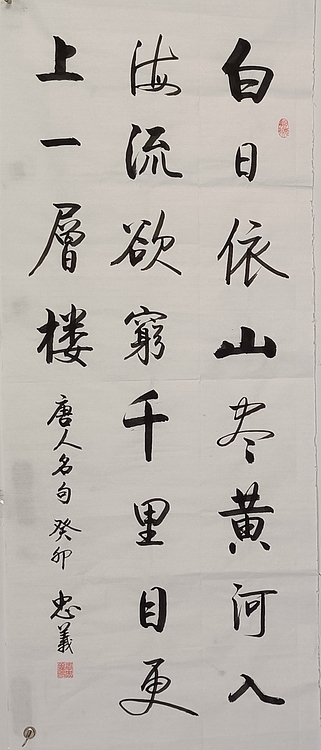 白日依山尽黄河入
海流欲窮千里目更
上一層楼
唐人名句 癸卯 忠義